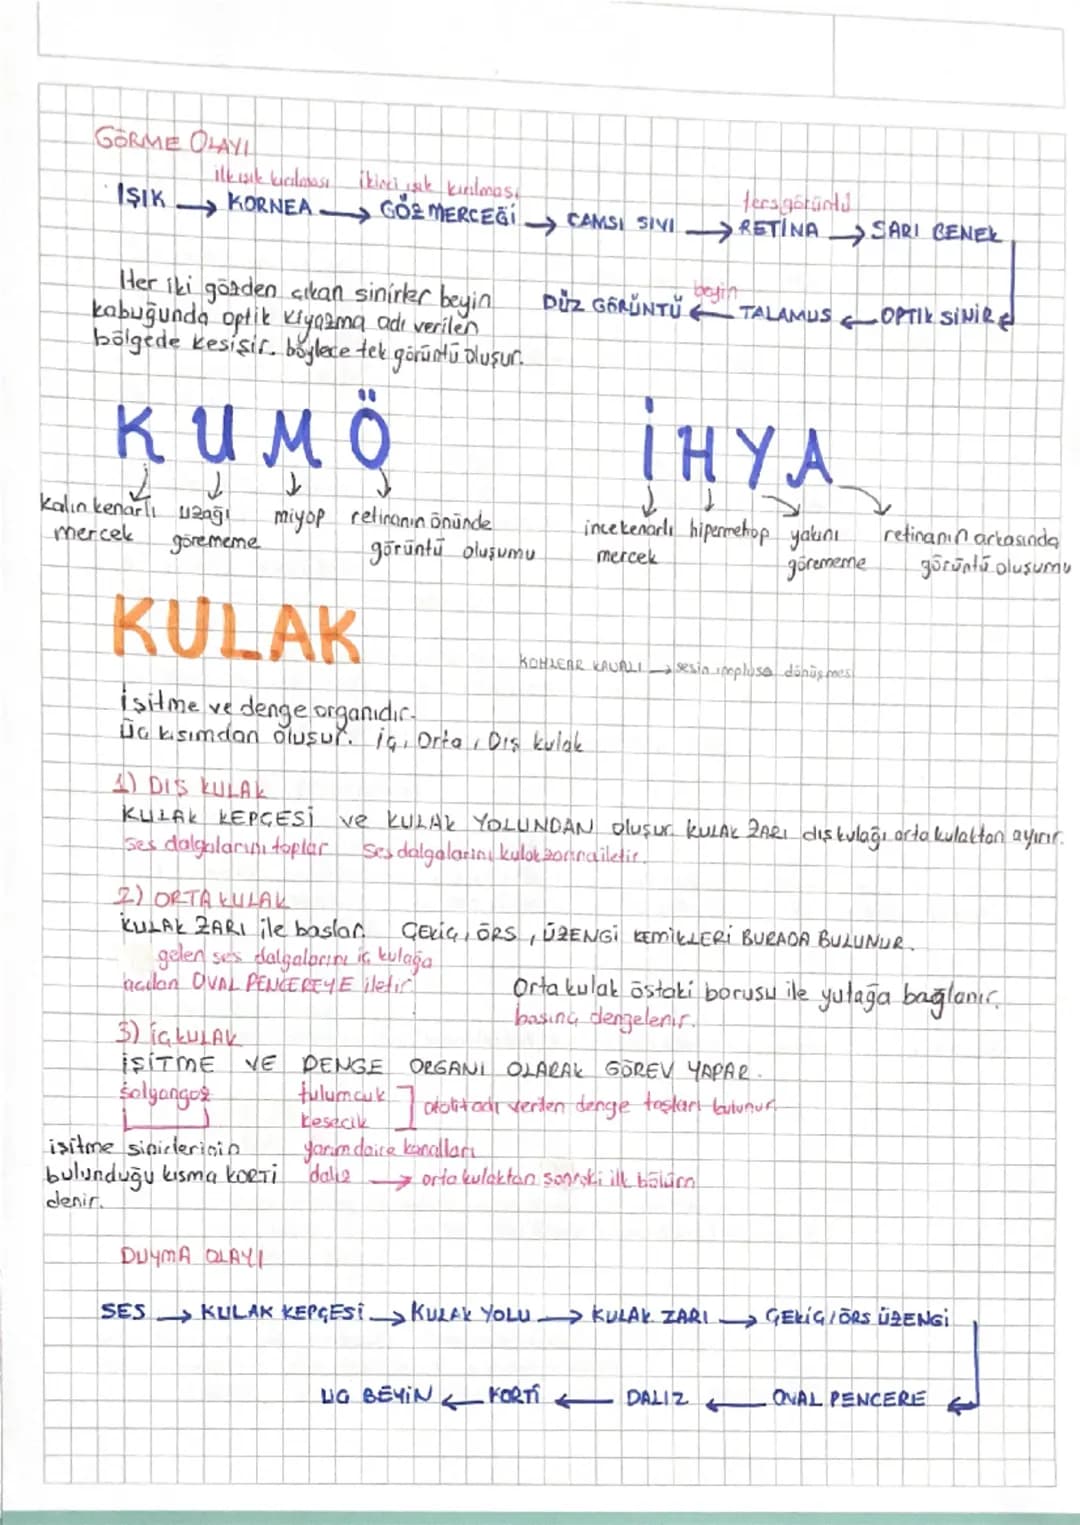 GÖRME OLAYI
ilk ışık kırılması ikinci ışık kırılması ters görüntü
IŞIK → KORNEA → GÖZ MERCEĞİ → CAMSI SIVI → RETİNA → SARI BENEK
beyin
DÜZ GÖRÜNTÜ ← TALAMUS ← OPTİK SİNİR
Her iki gözden çıkan sinirler beyin
kabuğunda optik kiyazma adı verilen
bölgede kesişir. böylece tek görüntü oluşur.
KUMÖ
kalın kenarlı uzağı miyop retinanın önünde
mercek görememe görüntü oluşumu
İHYA
ince kenarlı hipermetrop yakını retinanın arkasında
mercek görememe görüntü oluşumu
KULAK
KOHLEAR KANALI → sesin implusa dönüşmesi
İşitme ve denge organıdır.
Üç kısımdan oluşur. İç, Orta, Dış kulak
1) DIŞ KULAK
KULAK KEPÇESİ ve KULAK YOLUNDAN oluşur. KULAK ZARI dış kulağı orta kulaktan ayırır.
Ses dalgalarını toplar Ses dalgalarını kulak zarına iletir.
2) ORTA KULAK
KULAK ZARI ile başlar. ÇEKİÇ, ÖRS, ÜZENGİ KEMİKLERİ BURADA BULUNUR.
gelen ses dalgalarını iç kulağa
açılan OVAL PENCEREYE iletir.
Orta kulak östaki borusu ile yutağa bağlanır.
basınç dengelenir.
3) İÇ KULAK
İŞİTME VE DENGE ORGANI OLARAK GÖREV YAPAR.
Salyangoz tulumcuk
kesecik
otolit adı verilen denge taşları bulunur.
yarım daire kanalları
daliz → orta kulaktan sonraki ilk bölüm
işitme sinirlerinin
bulunduğu kısma KORTİ
denir.
DUYMA OLAYI
SES → KULAK KEPÇESİ → KULAK YOLU → KULAK ZARI → ÇEKİÇ/ÖRS ÜZENGİ
UÇ BEYİN ← KORTİ ← DALIZ ← OVAL PENCERE